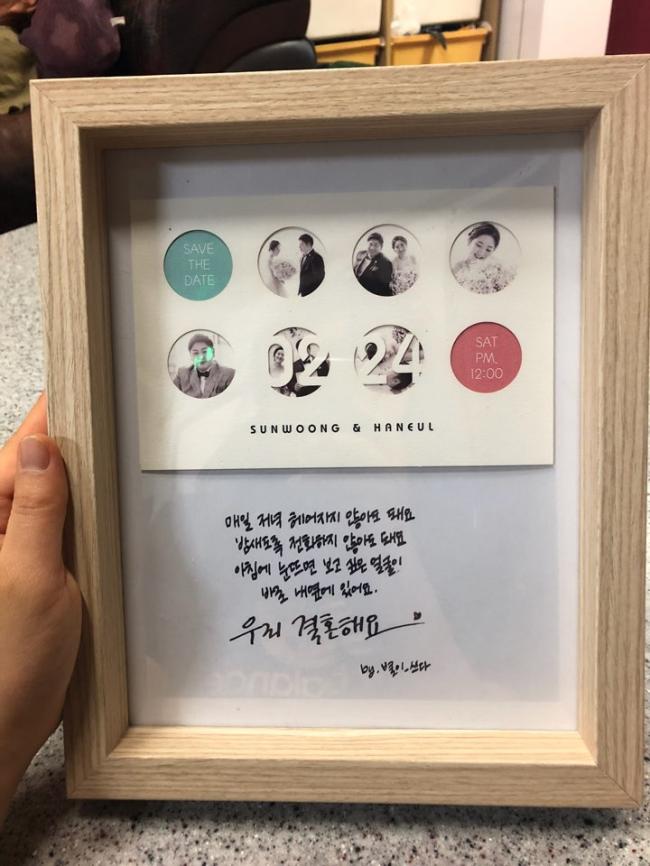 SAVE
THE
DATE
02 24
SAT
PM.
12:00
SUNWOONG & HANEUL
매일 저녁 헤어지지 않아도 돼요
밤새도록 전화하지 않아도 돼요
아침에 눈뜨면 보고 싶은 얼굴이
바로 내옆에 있어요.
우리 결혼해요
by. 별이.쓰다